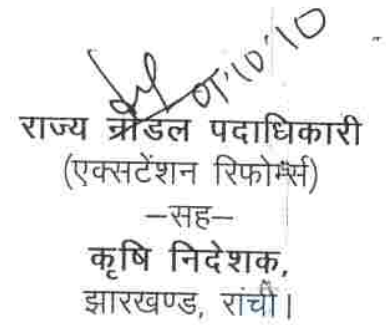 01.10.10
राज्य नोडल पदाधिकारी
(एक्सटेंशन रिफोर्म्स)
–सह–
कृषि निदेशक,
झारखण्ड, रांची।